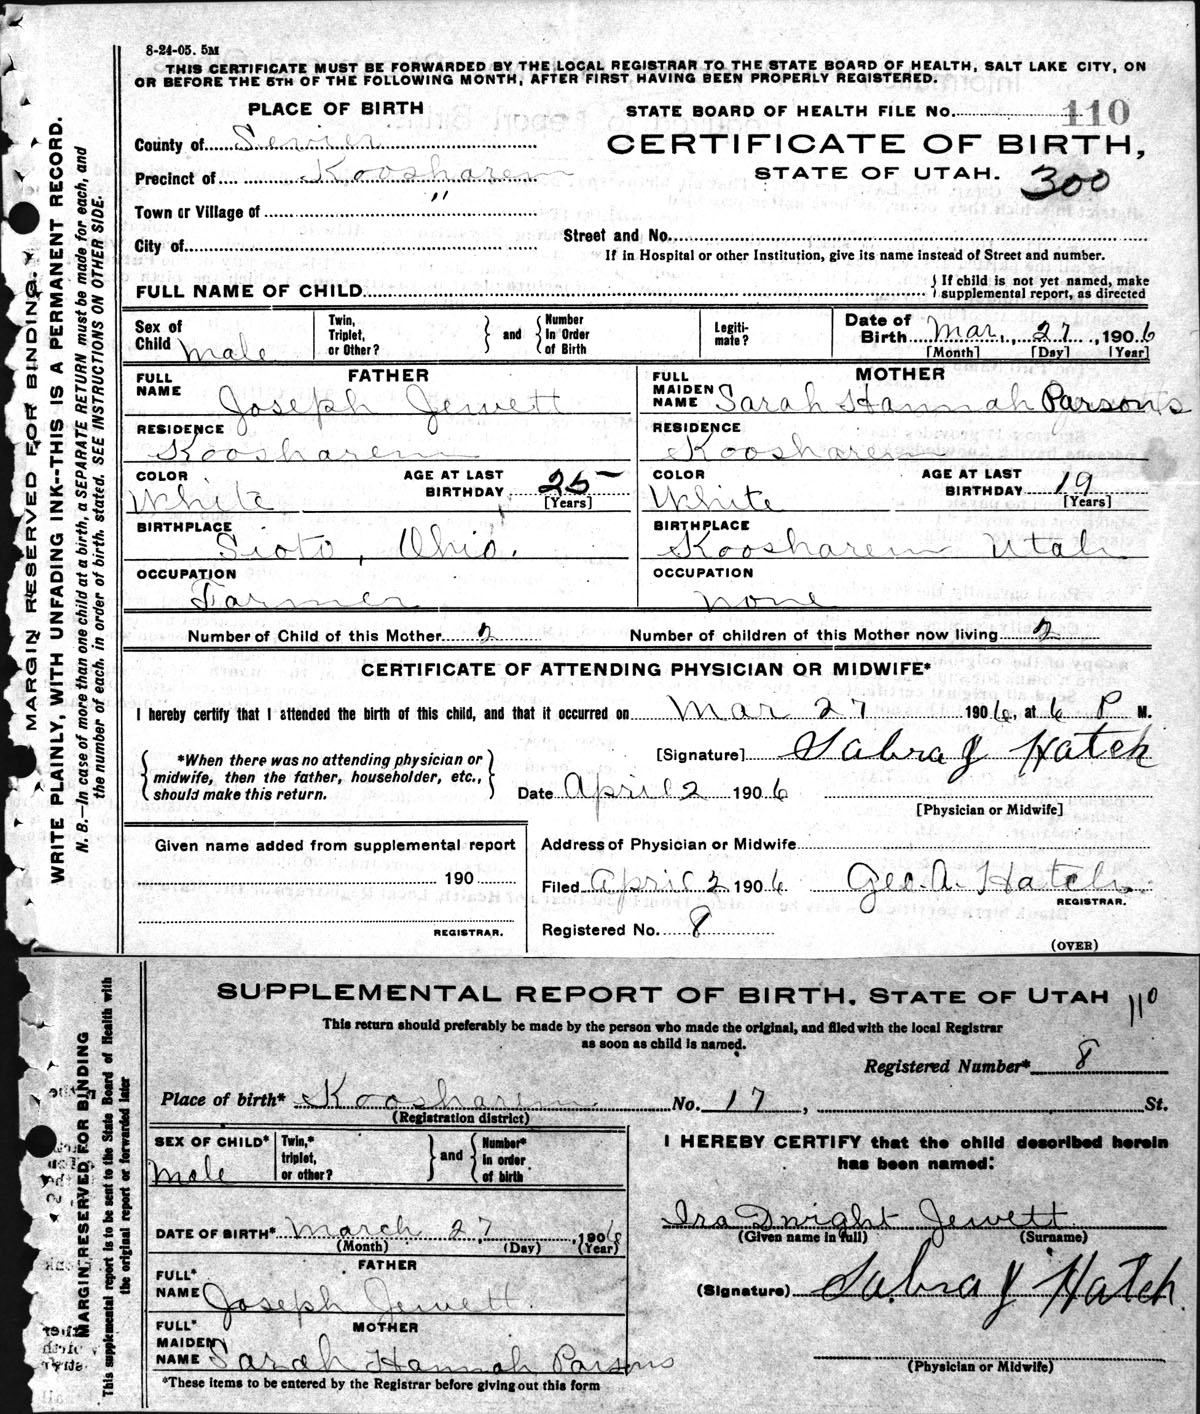 8-24-05. 5M
THIS CERTIFICATE MUST BE FORWARDED BY THE LOCAL REGISTRAR TO THE STATE BOARD OF HEALTH, SALT LAKE CITY, ON
OR BEFORE THE 5TH OF THE FOLLOWING MONTH, AFTER FIRST HAVING BEEN PROPERLY REGISTERED.
MARGIN RESERVED FOR BINDING.
WRITE PLAINLY, WITH UNFADING INK--THIS IS A PERMANENT RECORD.
N. B.—In case of more than one child at a birth, a SEPARATE RETURN must be made for each, and
the number of each, in order of birth, stated. SEE INSTRUCTIONS ON OTHER SIDE.
PLACE OF BIRTH
County of Sevier
Precinct of Koosharem
Town or Village of "
City of
STATE BOARD OF HEALTH FILE No. 110
CERTIFICATE OF BIRTH,
STATE OF UTAH. 300
Street and No.
If in Hospital or other Institution, give its name instead of Street and number.
FULL NAME OF CHILD
If child is not yet named, make
supplemental report, as directed
Sex of
Child Male
Twin,
Triplet,
or Other?
and
Number
in Order
of Birth
Legiti-
mate?
Date of
Birth Mar. 27, 1906
[Month] [Day] [Year]
FATHER
FULL
NAME Joseph Jewett
RESIDENCE
Koosharem
COLOR
White
AGE AT LAST
BIRTHDAY 25
[Years]
BIRTHPLACE
Sioto, Ohio.
OCCUPATION
Farmer
MOTHER
FULL
MAIDEN
NAME Sarah Hannah Parsons
RESIDENCE
Koosharem
COLOR
White
AGE AT LAST
BIRTHDAY 19
[Years]
BIRTHPLACE
Koosharem Utah
OCCUPATION
none
Number of Child of this Mother 2 Number of children of this Mother now living 2
CERTIFICATE OF ATTENDING PHYSICIAN OR MIDWIFE*
I hereby certify that I attended the birth of this child, and that it occurred on Mar 27 1906, at 6 P M.
*When there was no attending physician or
midwife, then the father, householder, etc.,
should make this return.
[Signature] Sabra J Hatch
Date April 2 1906
[Physician or Midwife]
Given name added from supplemental report
190
REGISTRAR.
Address of Physician or Midwife
Filed April 2 1906 Geo. A. Hatch
REGISTRAR.
Registered No. 8
(OVER)
MARGIN RESERVED FOR BINDING
This supplemental report is to be sent to the State Board of Health with
the original report or forwarded later
SUPPLEMENTAL REPORT OF BIRTH, STATE OF UTAH 110
This return should preferably be made by the person who made the original, and filed with the local Registrar
as soon as child is named.
Registered Number* 8
Place of birth* Koosharem No. 17, St.
(Registration district)
SEX OF CHILD*
Male
Twin,*
triplet,
or other?
and
Number*
in order
of birth
DATE OF BIRTH* March 27, 1906
(Month) (Day) (Year)
FATHER
FULL*
NAME Joseph Jewett
MOTHER
FULL*
MAIDEN
NAME Sarah Hannah Parsons
*These items to be entered by the Registrar before giving out this form
I HEREBY CERTIFY that the child described herein
has been named:
Ira Dwight Jewett
(Given name in full) (Surname)
(Signature) Sabra J Hatch.
(Physician or Midwife)